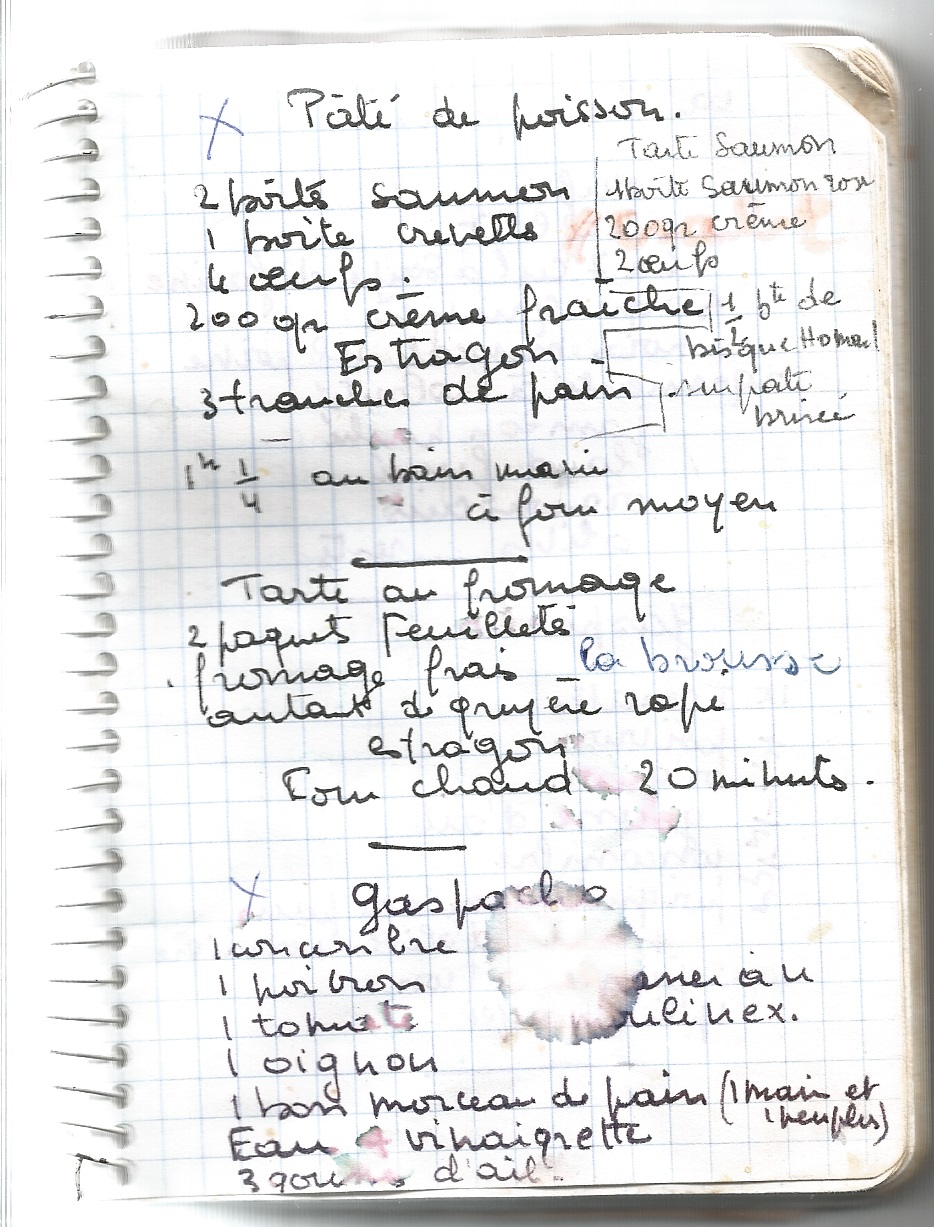 Pâté de poisson.
2 boîtes saumon
1 boîte crevettes
4 œufs.
200 gr crème fraîche
Estragon
3 tranches de pain
Tarte Saumon
1 boîte Saumon rose
200 gr crème
2 œufs
1/2 bte de
bisque Homard
sur pate
brisée
1h 1/4 au bain marie
à four moyen
Tarte au fromage
2 paquets feuilletés
fromage frais la brousse
autant de gruyère rapé
estragon
Four chaud 20 minutes.
X gaspacho
1 concombre
1 poivron
1 tomate
au
ulinex.
1 oignon
1 bon morceau de pain (1 main et
1 peu plus)
Eau vinaigrette
3 d'ail.